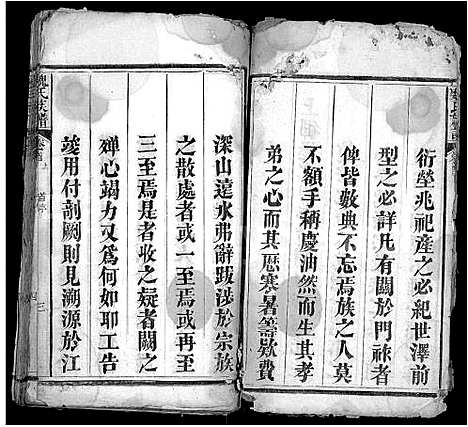 衍塋兆祀產之必紀世澤前
型之必詳凡有關於門祿者
俾皆數典不忘焉族之人莫
不額手稱慶油然而生其孝
弟之心而其歷寒暑籌歀費
深山遠水弗辭跋涉於宗族
之散處者或一至焉或再至
三至焉是者收之疑者闕之
殫心竭力又為何如耶工告
竣用付剞劂則見溯源於江